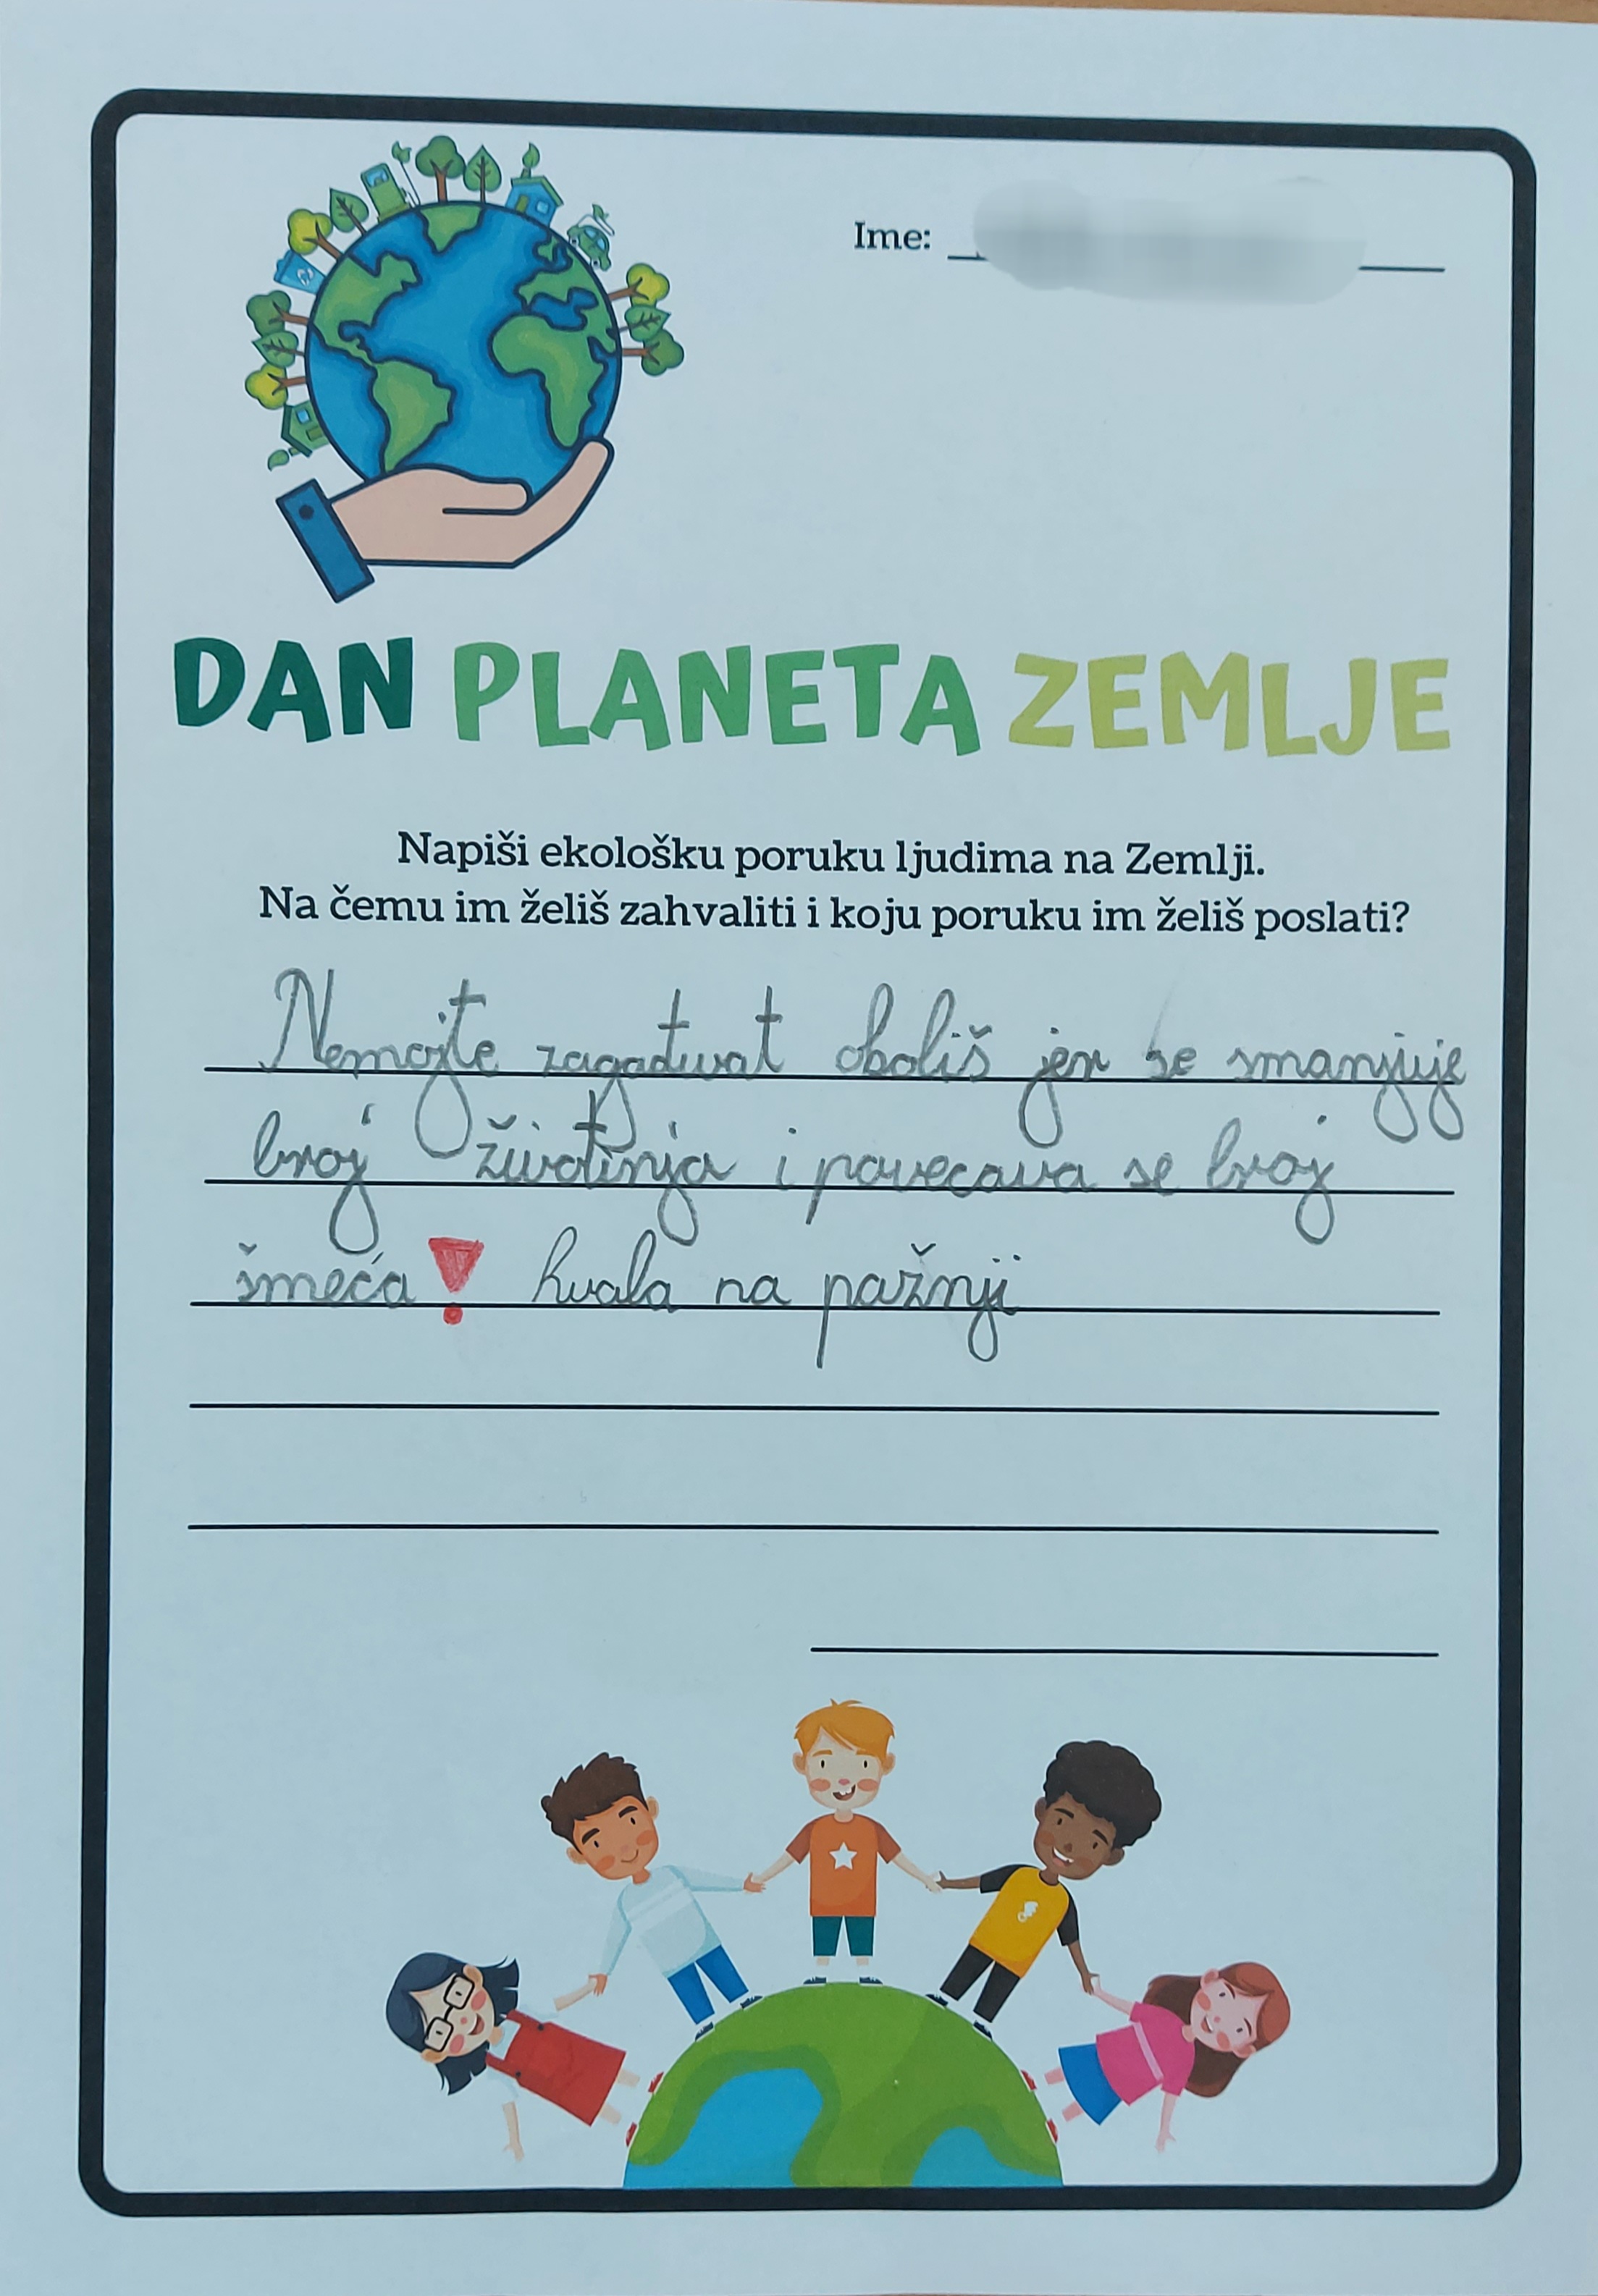 Ime:
DAN PLANETA ZEMLJE
Napiši ekološku poruku ljudima na Zemlji.
Na čemu im želiš zahvaliti i koju poruku im želiš poslati?
Nemojte zagađuvat oboliš jer se smanjuje
broj životinja i povecava se broj
šmeća! hvala na pažnji